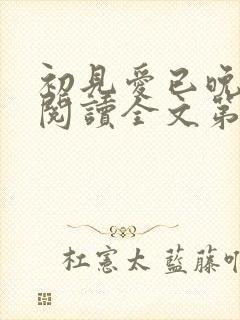 初見愛已晚
閱讀全文第
杜憲太 藍藤